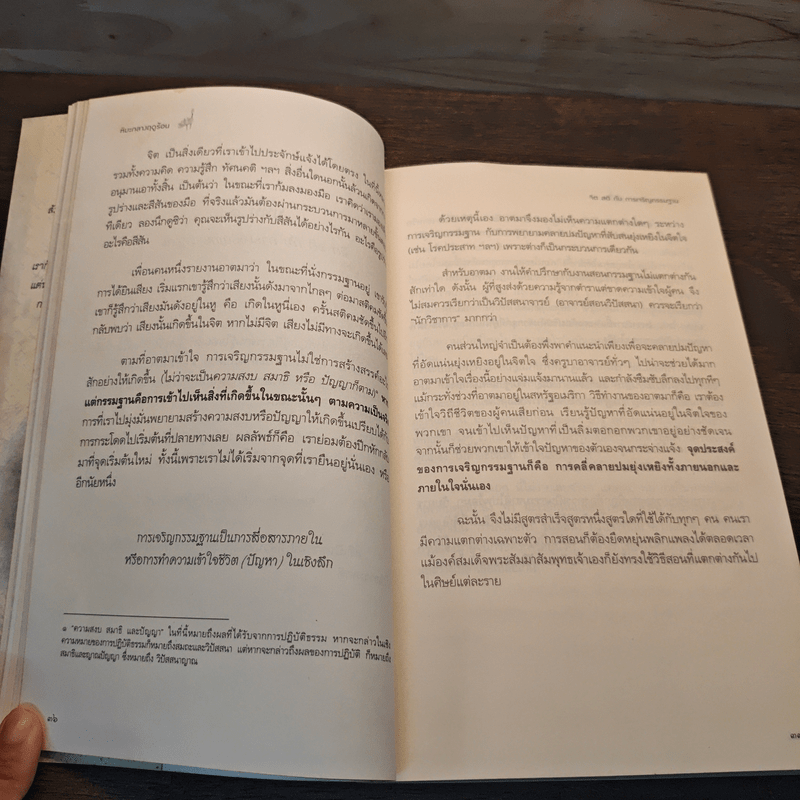 หิมะกลางฤดูร้อน
จิต เป็นสิ่งเดียวที่เราเข้าไปประจักษ์แจ้งได้โดยตรง ในที่นี้
รวมทั้งความคิด ความรู้สึก ทัศนคติ ฯลฯ สิ่งอื่นใดนอกนั้นล้วนเกิดจาก
อนุมานเอาทั้งสิ้น เป็นต้นว่า ในขณะที่เราก้มลงมองมือ เราคิดว่าเรา
รูปร่างและสีสันของมือ ที่จริงแล้วมันต้องผ่านกระบวนการมาหลายขั้น
ทีเดียว ลองนึกดูซิว่า คุณจะเห็นรูปร่างกับสีสันได้อย่างไรกัน อะไรคือรูป
อะไรคือสีสัน
เพื่อนคนหนึ่งรายงานอาตมาว่า ในขณะที่นั่งกรรมฐานอยู่
การได้ยินเสียง เริ่มแรกเขารู้สึกว่าเสียงนั้นดังมาจากไกลๆ ต่อมาสติคมชัด
เขาก็รู้สึกว่าเสียงมันดังอยู่ในหู คือ เกิดในหูนี่เอง ครั้นสติคมชัดขึ้นไป
กลับพบว่า เสียงนั้นเกิดขึ้นในจิต หากไม่มีจิต เสียงไม่มีทางจะเกิดขึ้นได้
ตามที่อาตมาเข้าใจ การเจริญกรรมฐานไม่ใช่การสร้างสรรค์
สักอย่างให้เกิดขึ้น (ไม่ว่าจะเป็นความสงบ สมาธิ หรือ ปัญญาก็ตาม)๑
แต่กรรมฐานคือการเข้าไปเห็นสิ่งที่เกิดขึ้นในขณะนั้นๆ ตามความเป็น
การที่เราไปมุ่งมั่นพยายามสร้างความสงบหรือปัญญาให้เกิดขึ้นเปรียบได้
การกระโดดไปเริ่มต้นที่ปลายทางเลย ผลลัพธ์ก็คือ เราย่อมต้องปีกหัก
มาที่จุดเริ่มต้นใหม่ ทั้งนี้เพราะเราไม่ได้เริ่มจากจุดที่เรายืนอยู่นั่นเอง
อีกนัยหนึ่ง
การเจริญกรรมฐานเป็นการสื่อสารภายใน
หรือการทำความเข้าใจชีวิต (ปัญหา) ในเชิงลึก
๑ "ความสงบ สมาธิ และปัญญา" ในที่นี้หมายถึงผลที่ได้รับจากการปฏิบัติธรรม หากจะกล่าวในเชิง
ความหมายของการปฏิบัติธรรมก็หมายถึงสมถะและวิปัสสนา แต่หากจะกล่าวถึงผลของการปฏิบัติ ก็หมายถึง
สมาธิและญาณปัญญา ซึ่งหมายถึง วิปัสสนาญาณ
๓๖
จิต สติ กับ การเจริญกรรมฐาน
ด้วยเหตุนี้เอง อาตมาจึงมองไม่เห็นความแตกต่างใดๆ ระหว่าง
การเจริญกรรมฐาน กับการพยายามคลายปมปัญหาที่สับสนยุ่งเหยิงในจิตใจ
(เช่น โรคประสาท ฯลฯ) เพราะต่างก็เป็นกระบวนการเดียวกัน
สำหรับอาตมา งานให้คำปรึกษากับงานสอนกรรมฐานไม่แตกต่างกัน
สักเท่าใด ดังนั้น ผู้ที่สูงส่งด้วยความรู้จากตำราแต่ขาดความเข้าใจผู้คน จึง
ไม่สมควรเรียกว่าเป็นวิปัสสนาจารย์ (อาจารย์สอนวิปัสสนา) ควรจะเรียกว่า
"นักวิชาการ" มากกว่า
คนส่วนใหญ่จำเป็นต้องพึ่งพาคำแนะนำเพียงเพื่อจะคลายปมปัญหา
ที่อัดแน่นยุ่งเหยิงอยู่ในจิตใจ ซึ่งครูบาอาจารย์ทั่วๆ ไปน่าจะช่วยได้มาก
อาตมาเข้าใจเรื่องนี้อย่างแจ่มแจ้งมานานแล้ว และกำลังซึมซับลึกลงไปทุกทีๆ
แม้กระทั่งช่วงที่อาตมาอยู่ในสหรัฐอเมริกา วิธีทำงานของอาตมาก็คือ เราต้อง
เข้าใจวิถีชีวิตของผู้คนเสียก่อน เรียนรู้ปัญหาที่อัดแน่นอยู่ในจิตใจของ
พวกเขา จนเข้าไปเห็นปัญหาที่เป็นลิ่มตอกอกพวกเขาอยู่อย่างชัดเจน
จากนั้นก็ช่วยพวกเขาให้เข้าใจปัญหาของตัวเองจนกระจ่างแจ้ง จุดประสงค์
ของการเจริญกรรมฐานก็คือ การคลี่คลายปมยุ่งเหยิงทั้งภายนอกและ
ภายในใจนั่นเอง
ฉะนั้น จึงไม่มีสูตรสำเร็จสูตรหนึ่งสูตรใดที่ใช้ได้กับทุกๆ คน คนเรา
มีความแตกต่างเฉพาะตัว การสอนก็ต้องยืดหยุ่นพลิกแพลงได้ตลอดเวลา
แม้องค์สมเด็จพระสัมมาสัมพุทธเจ้าเองก็ยังทรงใช้วิธีสอนที่แตกต่างกันไป
ในศิษย์แต่ละราย